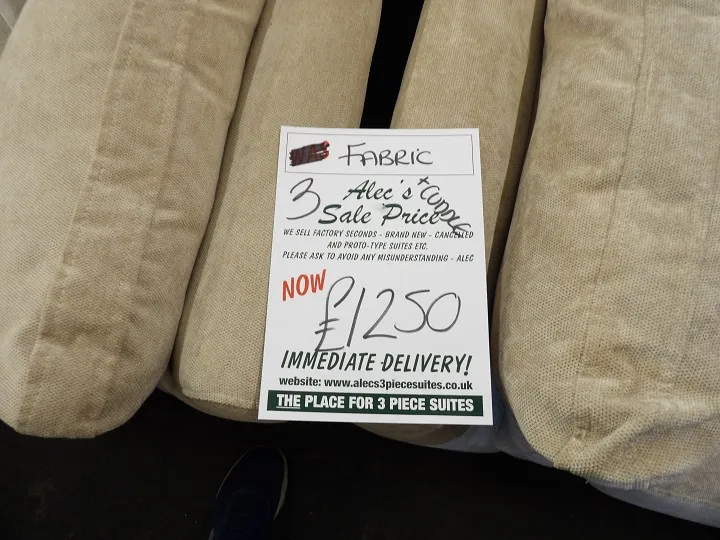 WAS FABRIC
3 Alec's + CUDDLE
Sale Price
WE SELL FACTORY SECONDS - BRAND NEW - CANCELLED
AND PROTO-TYPE SUITES ETC.
PLEASE ASK TO AVOID ANY MISUNDERSTANDING - ALEC
NOW
£1250
IMMEDIATE DELIVERY!
website: www.alecs3piecesuites.co.uk
THE PLACE FOR 3 PIECE SUITES